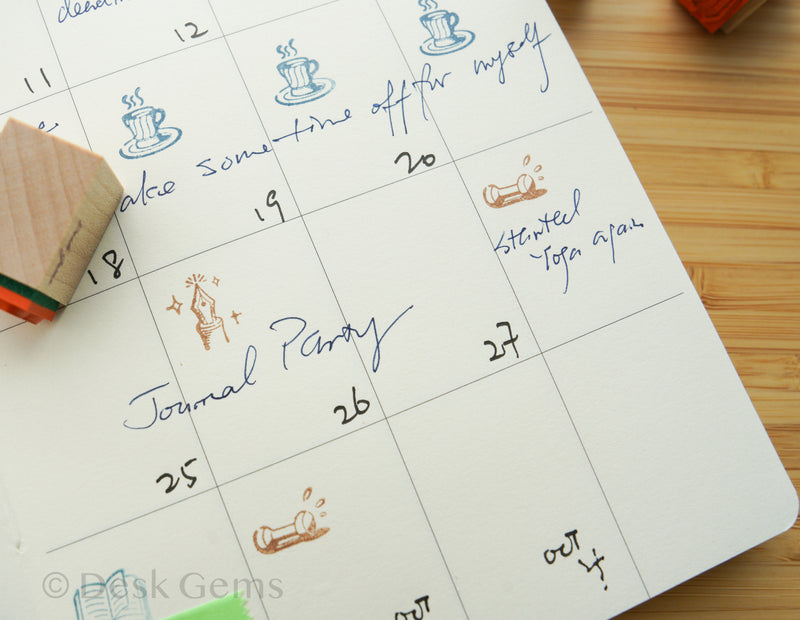 12
11
ake some time off for myself
20
19
18
started
Yoga again
Journal Party
27
26
25
oct
4
oct
© Desk Gems